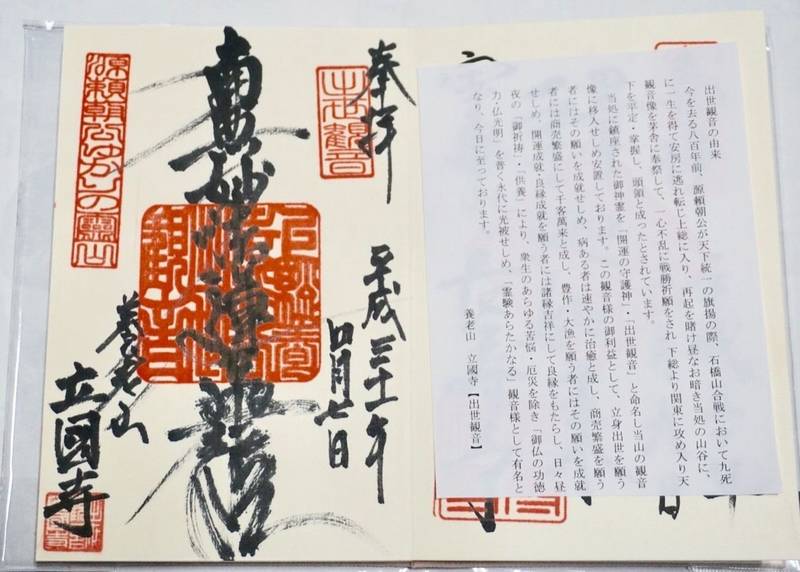 出世観音の由来
今を去る八百年前、源頼朝公が天下統一の旗揚の際、石橋山合戦において九死
に一生を得て安房に逃れ転じ上総に入り、再起を賭け昼なお暗き当処の山谷に、
観音像を茅舎に奉祭して、一心不乱に戦勝祈願をされ下総より関東に攻め入り天
下を平定・掌握し、頭領と成ったとされています。
当処に鎮座された御神霊を「開運の守護神」・「出世観音」と命名し当山の観音
像に移入せしめ安置しております。この観音様の御利益として、立身出世を願う
者にはその願いを成就せしめ、病ある者は速やかに治癒と成し、商売繁盛を願う
者には商売繁盛にして千客萬来と成し、豊作・大漁を願う者にはその願いを成就
せしめ、開運成就・良縁成就を願う者には諸縁吉祥にして良縁をもたらし、日々昼
夜の「御祈祷」・「供養」により、衆生のあらゆる苦悩・厄災を除き「御仏の功徳
力・仏光明」を普く永代に光被せしめ、「霊験あらたかなる」観音様として有名と
なり、今日に至っております。
養老山 立國寺【出世観音】
奉拝
出世観音
平成三十一年
四月七日
南無妙法蓮
源頼朝公ゆかりの霊山
養老山
立國寺